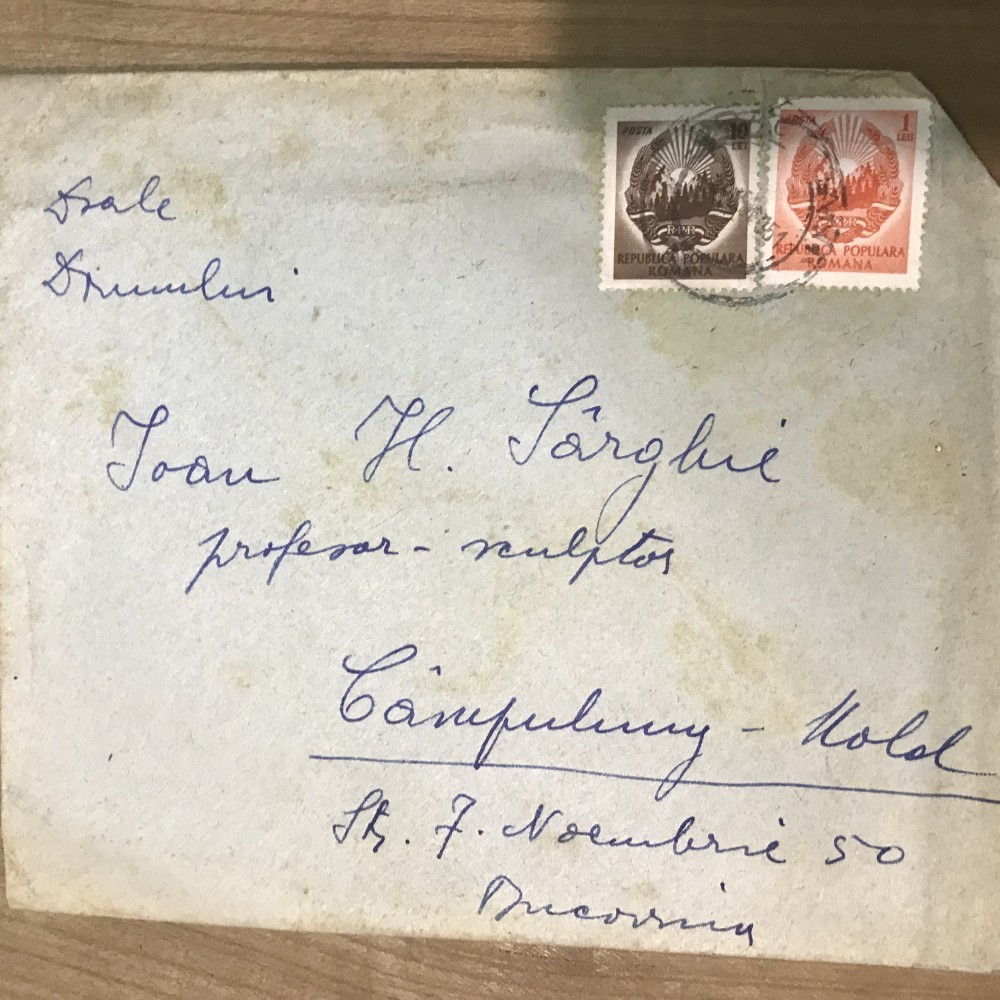 Dsale
Domnului
POSTA
10
LEI
RPR
REPUBLICA POPULARA
ROMANA
POSTA
1
LEU
RPR
REPUBLICA POPULARA
ROMANA
Ioan H. Sârghie
profesor - sculptor
Câmpulung - Mold
Str. 7. Noembrie 50
Bucovina